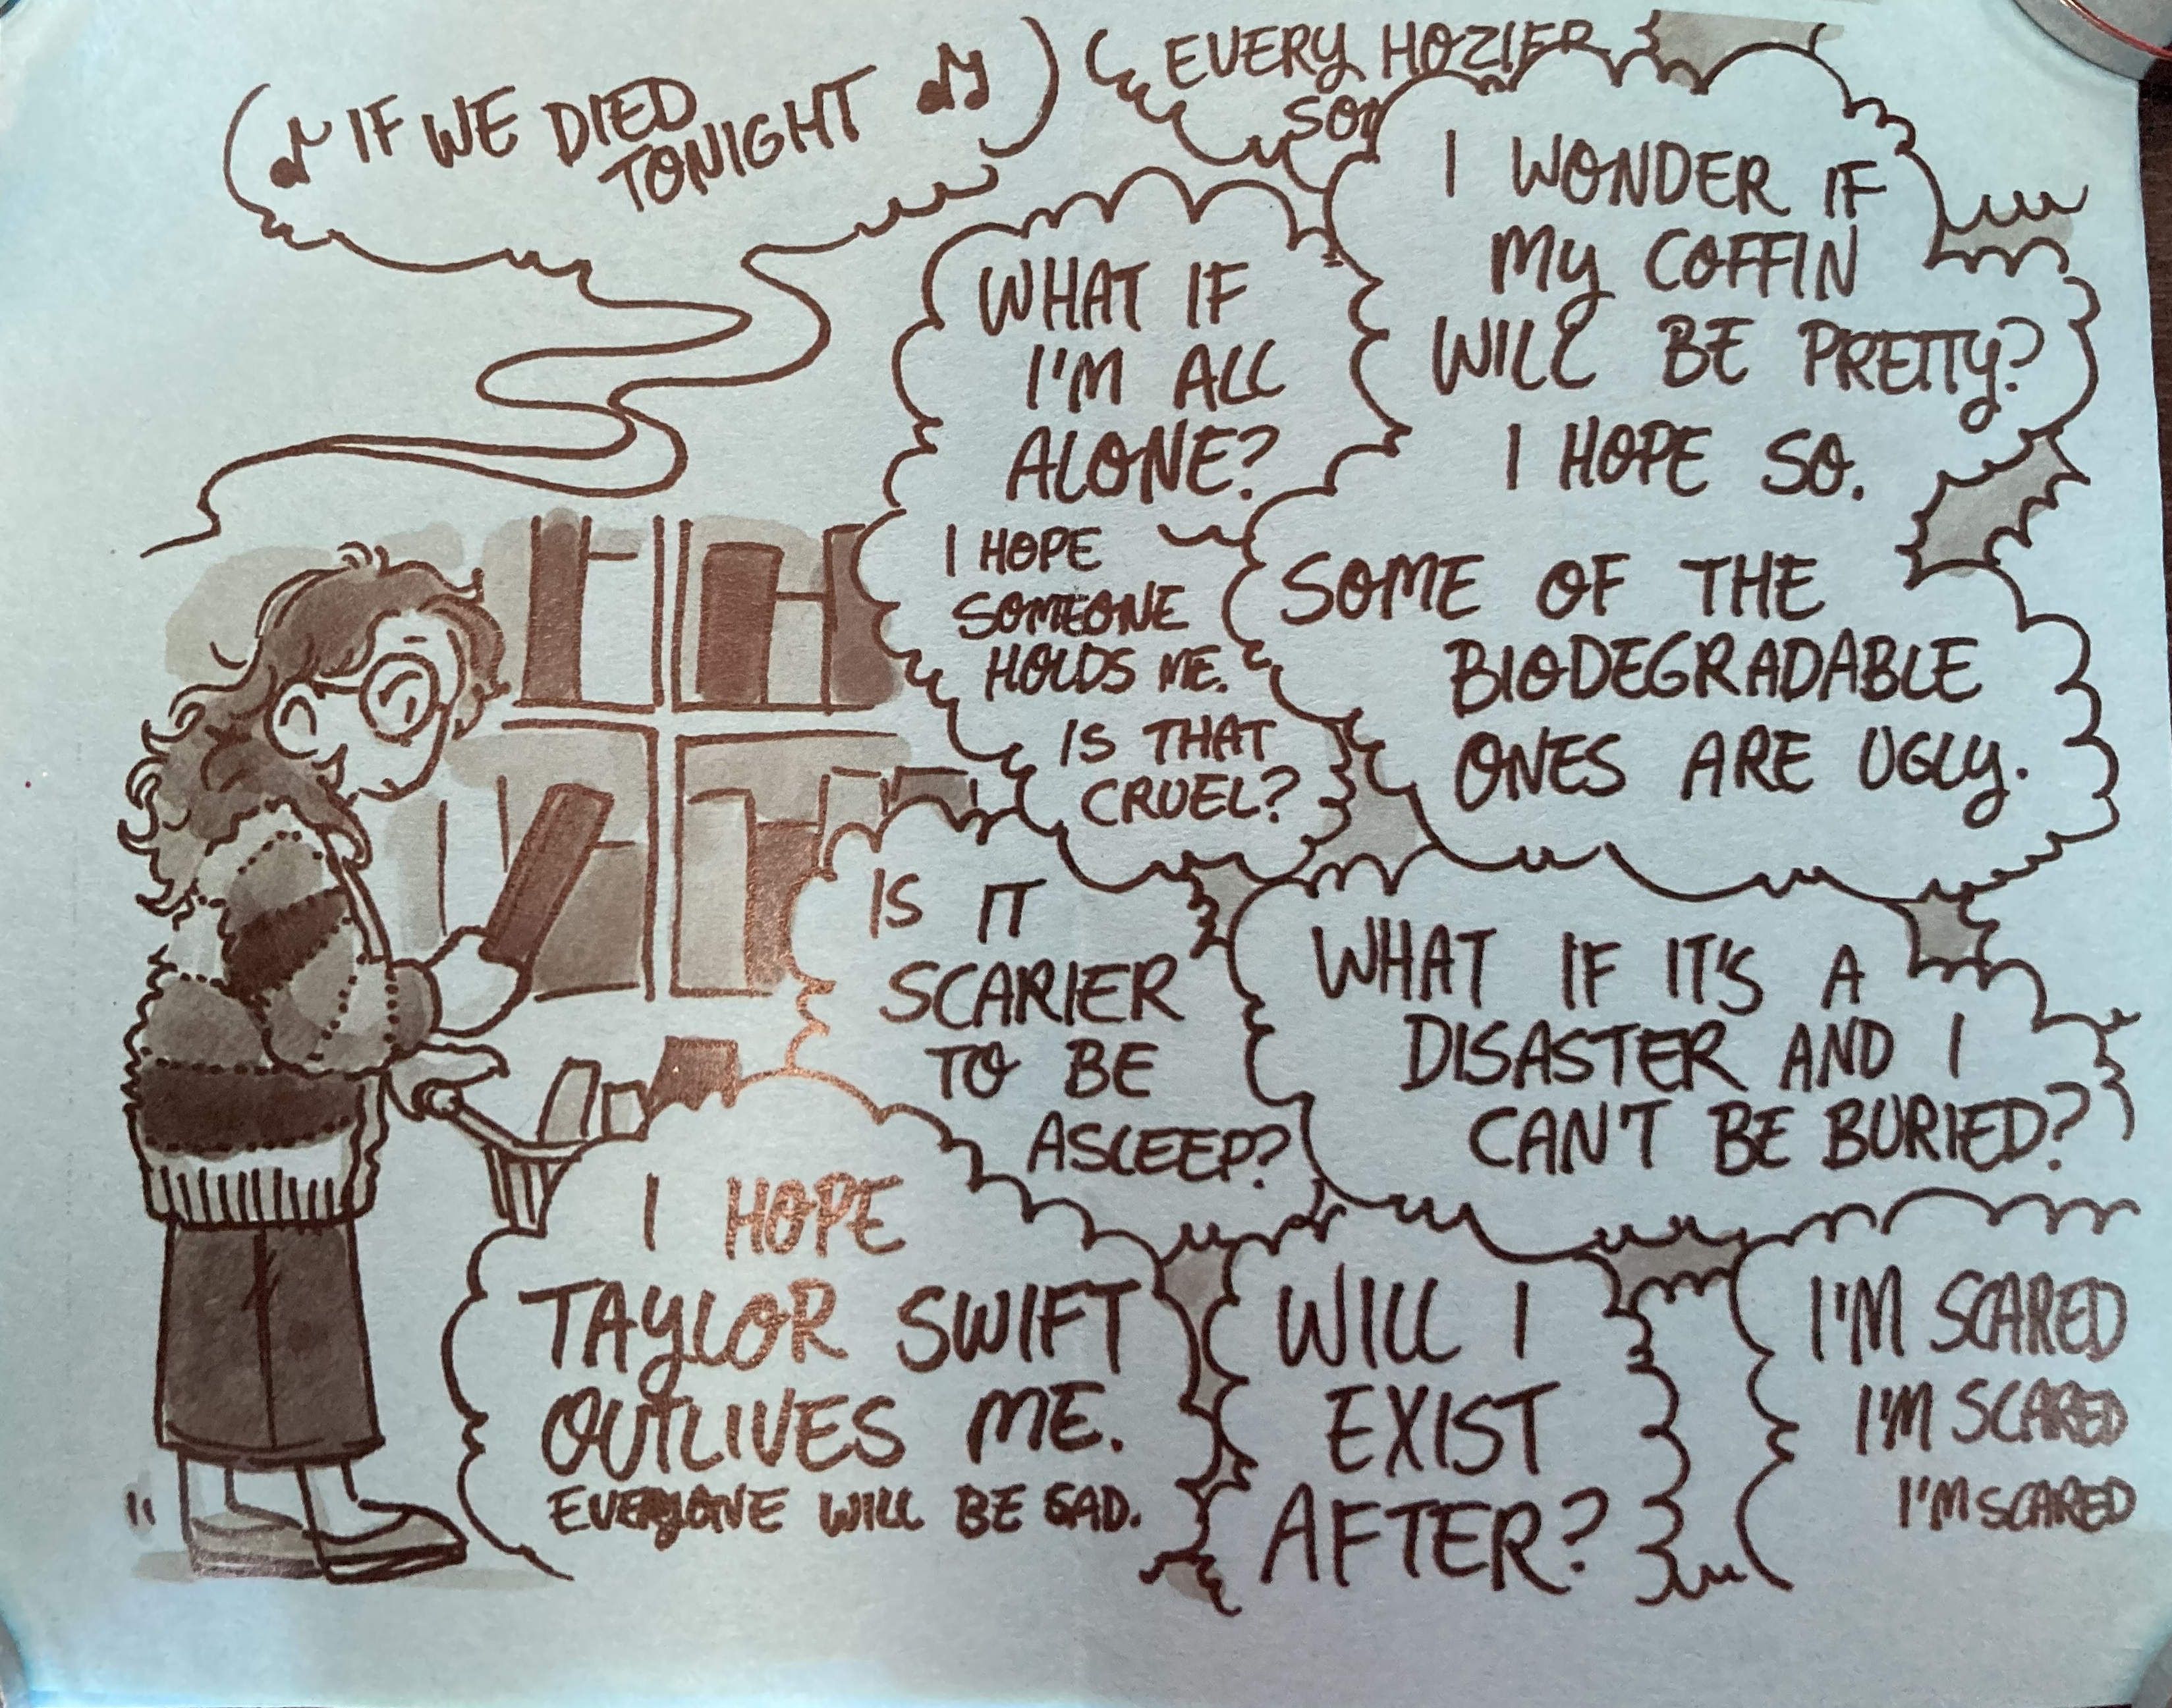 ♪ IF WE DIED
TONIGHT ♫
EVERY HOZIER
I WONDER IF
MY COFFIN
WILL BE PRETTY?
I HOPE SO.
WHAT IF
I'M ALL
ALONE?
I HOPE
SOMEONE
HOLDS ME.
IS THAT
CRUEL?
SOME OF THE
BIODEGRADABLE
ONES ARE UGLY.
IS IT
SCARIER
TO BE
ASLEEP?
WHAT IF IT'S A
DISASTER AND I
CAN'T BE BURIED?
I HOPE
TAYLOR SWIFT
OUTLIVES ME.
EVERYONE WILL BE SAD.
WILL I
EXIST
AFTER?
I'M SCARED
I'M SCARED
I'M SCARED